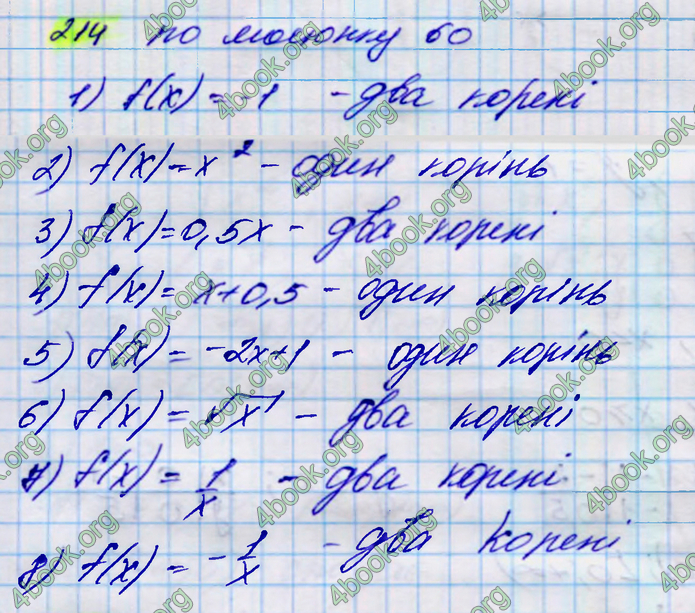 214 по малюнку 60
1) f(x) = -1 - два корені
2) f(x) = x² - один корінь
3) f(x) = 0,5x - два корені
4) f(x) = x+0,5 - один корінь
5) f(x) = -2x+1 - один корінь
6) f(x) = √x - два корені
7) f(x) = 1/x - два корені
8) f(x) = -1/x - два корені
4book.org